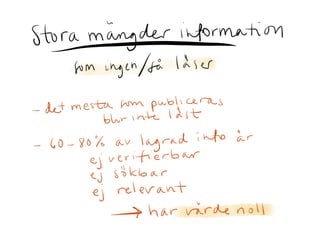 Stora mängder information
som ingen/få läser
- det mesta som publiceras
blir inte läst
- 60-80% av lagrad info är
ej verifierbar
ej sökbar
ej relevant
→ har värde noll